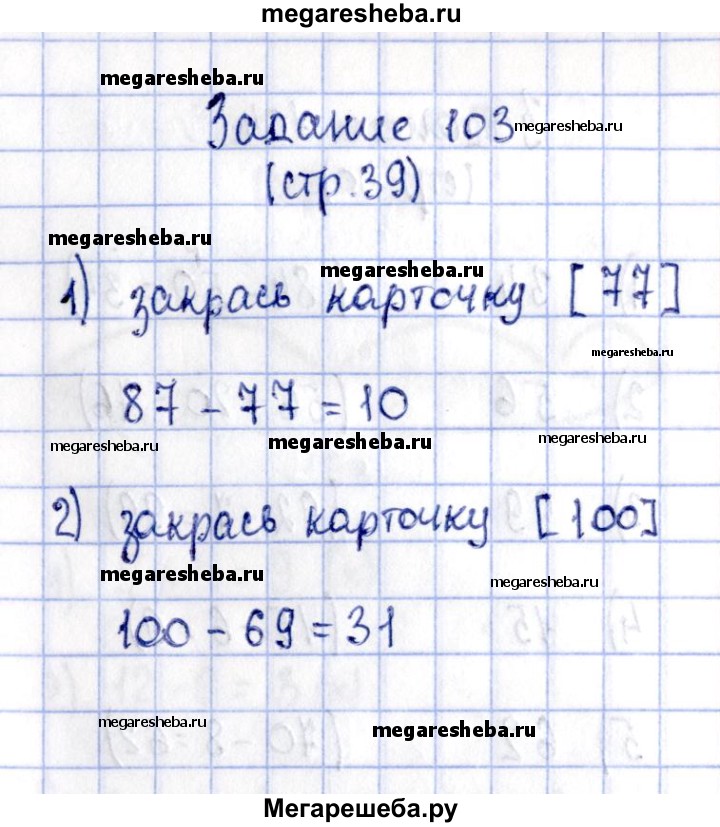 megaresheba.ru
megaresheba.ru
Задание 103
megaresheba.ru
(стр.39)
megaresheba.ru
megaresheba.ru
1) закрась карточку [77]
megaresheba.ru
87 - 77 = 10
megaresheba.ru
megaresheba.ru
megaresheba.ru
2) закрась карточку [100]
megaresheba.ru
megaresheba.ru
100 - 69 = 31
megaresheba.ru
megaresheba.ru
Мегарешеба.ру